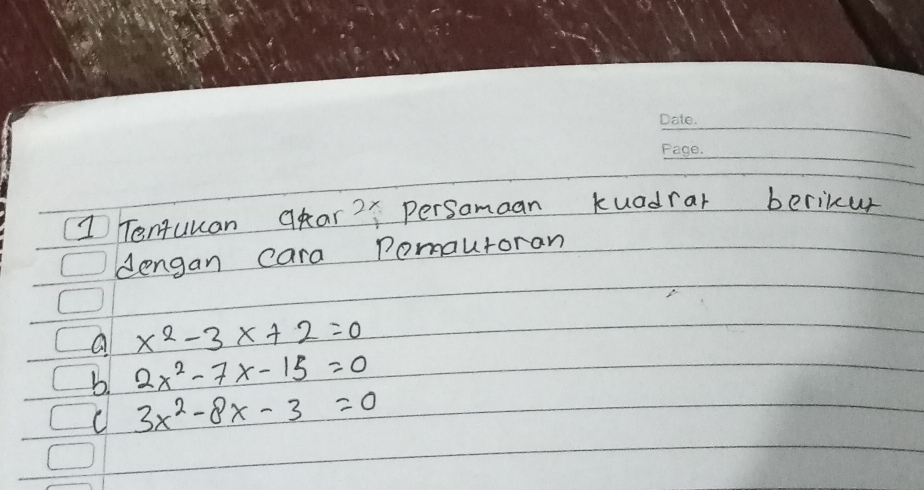 Date.
Page.
1 Tentukan akar 2x persamaan kuadrat berikut
dengan cara Pemautoran
a x² - 3x + 2 = 0
b. 2x² - 7x - 15 = 0
c 3x² - 8x - 3 = 0